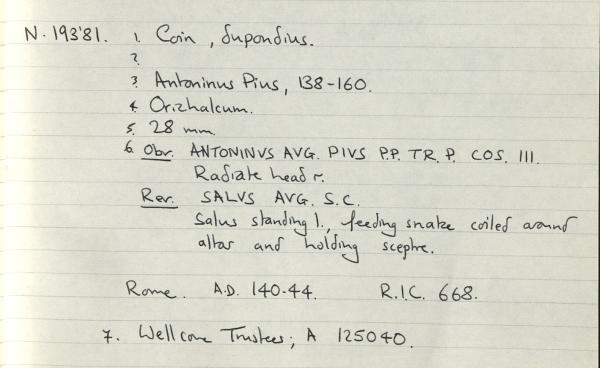 N. 193'81. 1. Coin, dupondius.
2.
3. Antoninus Pius, 138-160.
4. Orichalcum.
5. 28 mm.
6. Obv. ANTONINVS AVG. PIVS P.P. TR. P. COS. III.
Radiate head r.
Rev. SALVS AVG. S.C.
Salus standing l., feeding snake coiled around
altar and holding sceptre.
Rome. A.D. 140-44. R.I.C. 668.
7. Wellcome Trustees; A 125040.